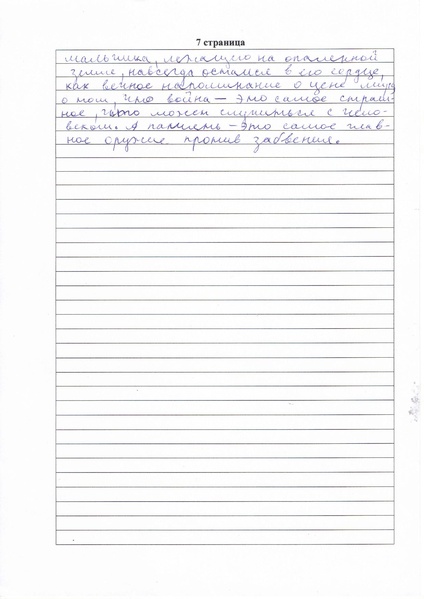 7 страница
мальчика, лежащего на опаленной
земле, навсегда остался в его сердце,
как вечное напоминание о цене мира,
о том, что война — это самое страш-
ное, что может случиться с чело-
веком. А память — это самое глав-
ное оружие против забвения.